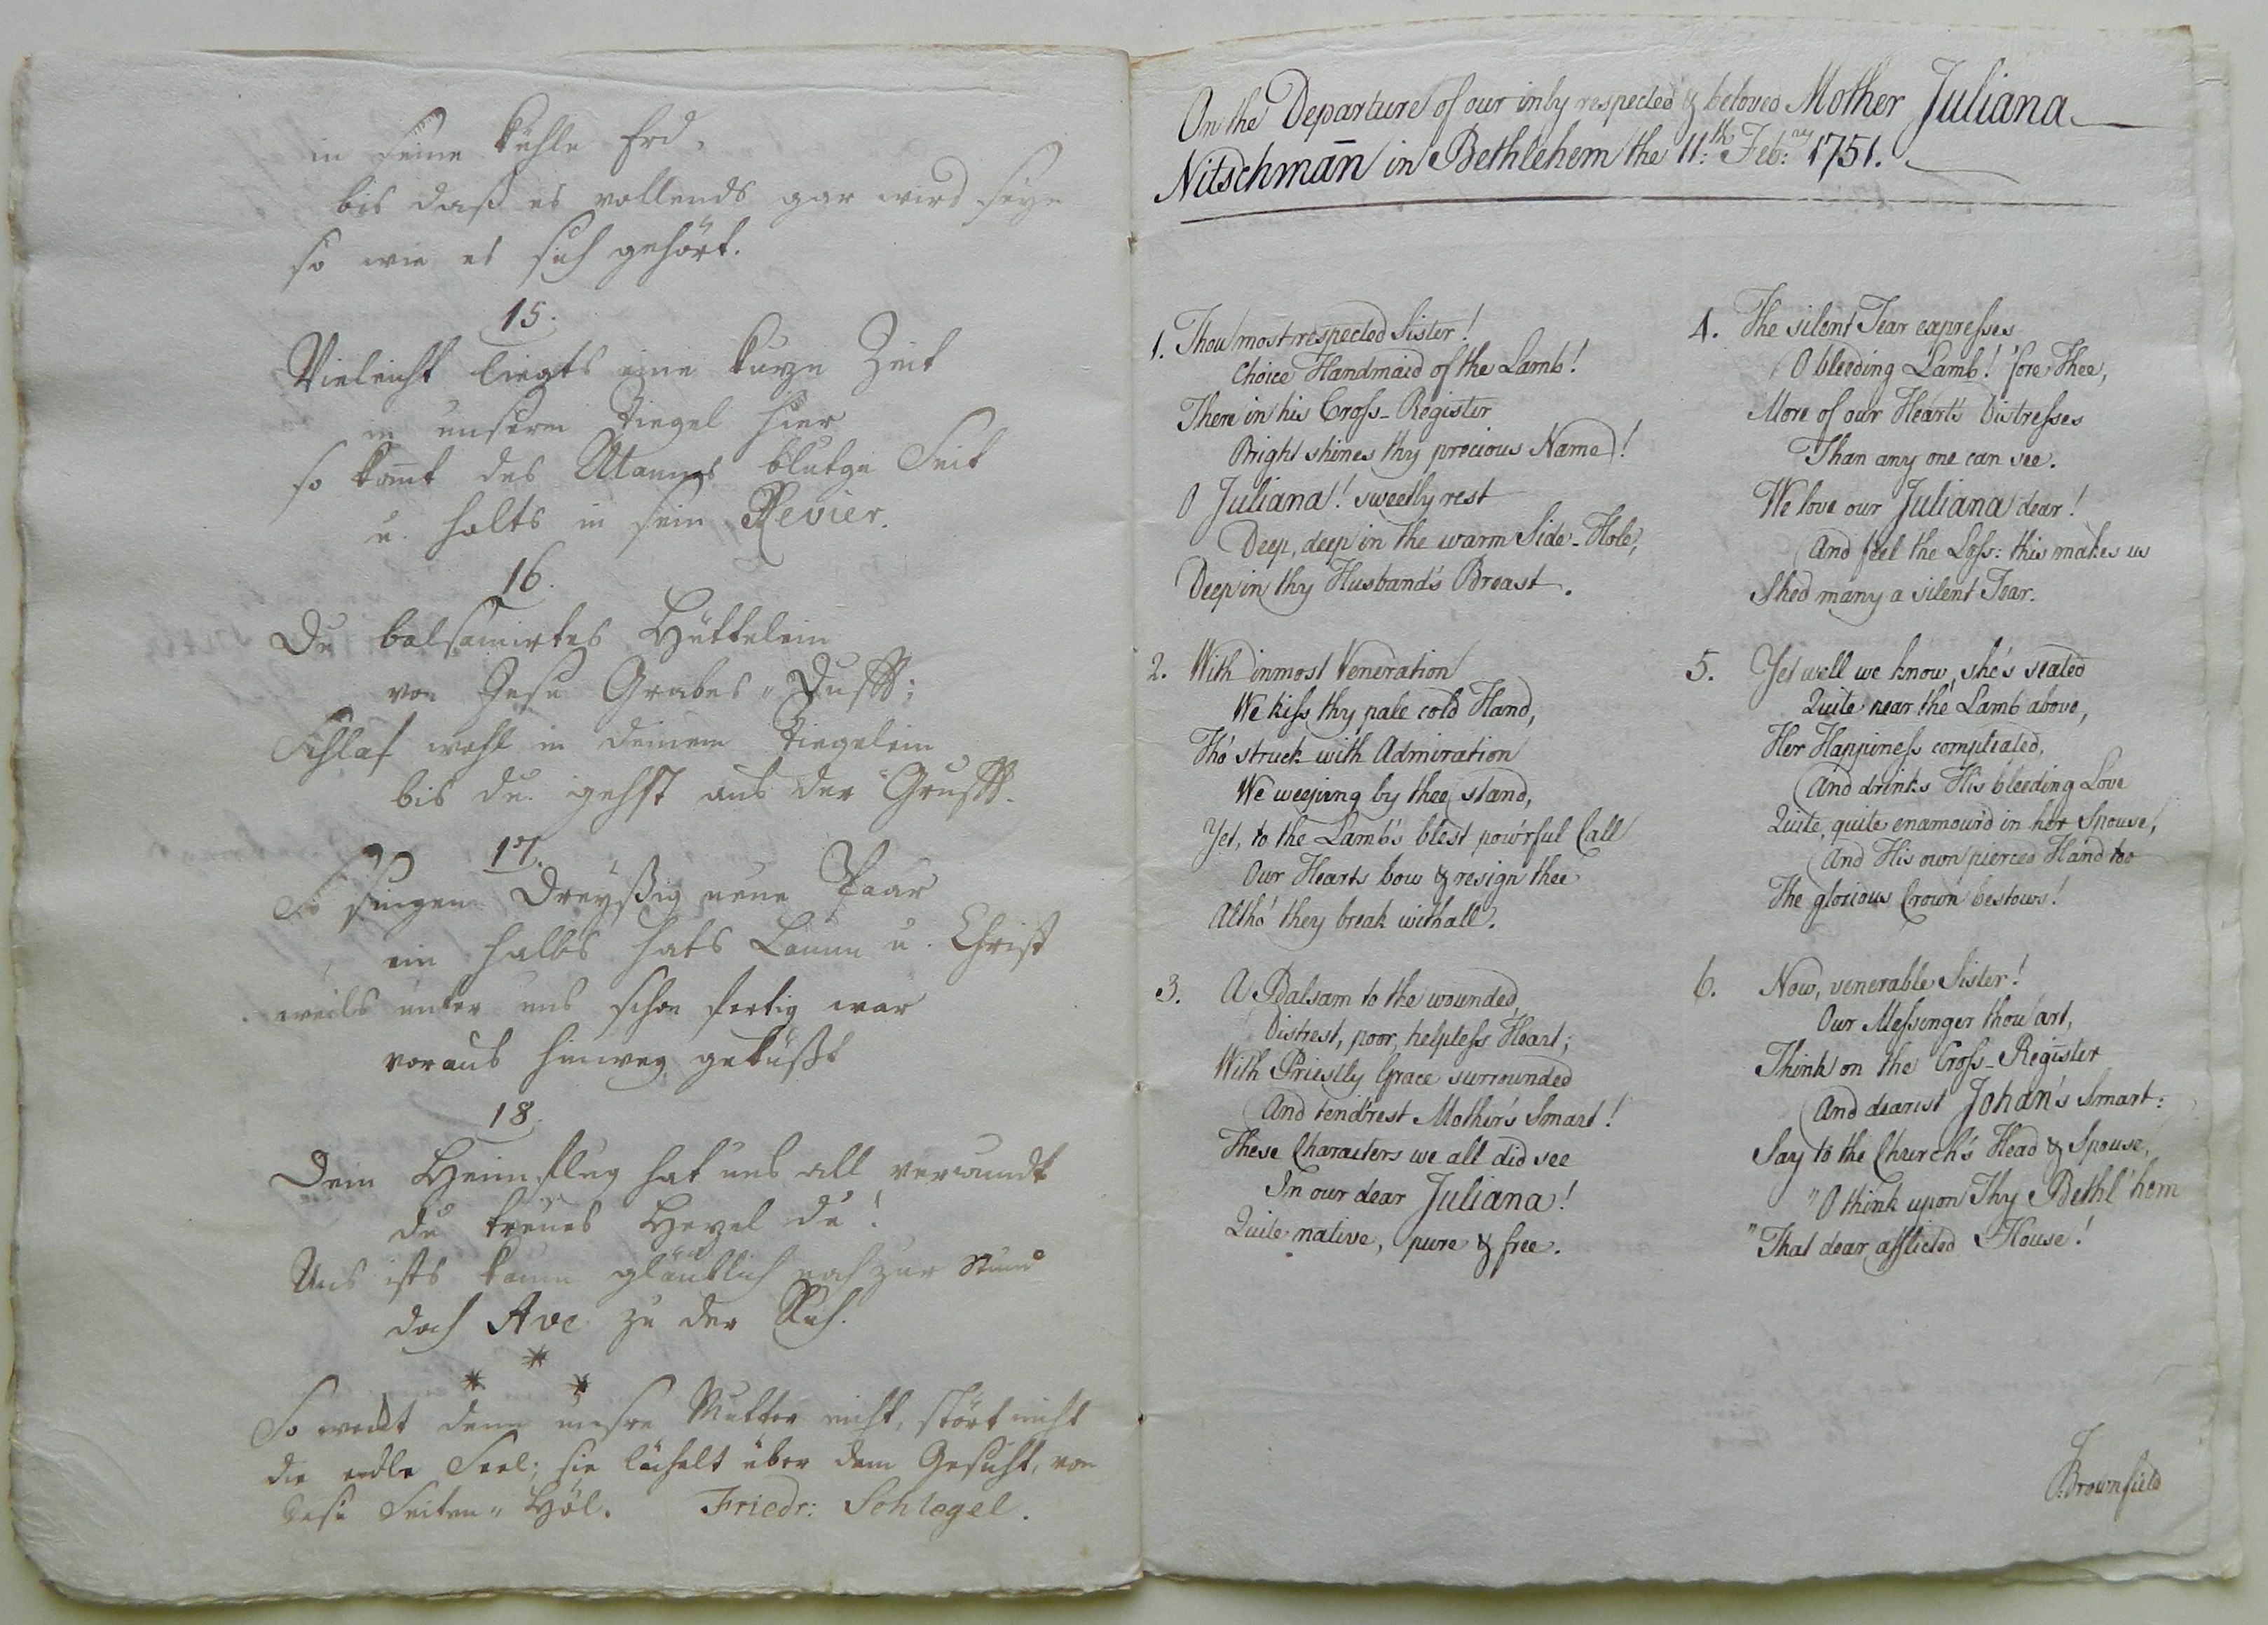 in seine kühle Erd,
bis daß es vollends gar wird seyn
so wie es sich gehört.
15.
Vieleicht liegts eine kurze Zeit
in unserm Tiegel hier
so kom̄t des Mannes blutge Seit
u. holts in sein Revier.
16.
Du balsamirtes Hüttelein
von Jesu Grabes-Dufft;
Schlaf wohl in deinem Tiegelein
bis du gehst aus der Grufft.
17.
So singen Dreyßig neue Paar
ein halbs hats Lamm u. Christ
weils unter uns schon fertig war
voraus hinweg geküßt
18.
Dein Heimflug hat uns all verwundt
du treues Herzel du!
Uns ists kaum gläublich noch zur Stund
doch Ave zu der Ruh.
So wekt denn unsre Mutter nicht, stört nicht
die edle Seel; sie lächelt über dem Gesicht, von
Jesu Seiten-Höl. Friedr: Schlegel.
On the Departure of our inly respected & beloved Mother Juliana
Nitschman̄ in Bethlehem the 11.th Feb:ry 1751.
1. Thou most respected Sister!
Choice Handmaid of the Lamb!
There in his Cross-Register
Bright shines thy precious Name!
O Juliana! sweetly rest
Deep, deep in the warm Side-Hole,
Deep in thy Husband's Breast.
2. With inmost Veneration
We kiss thy pale cold Hand,
Tho' struck with Admiration
We weeping by thee stand,
Yet, to the Lamb's blest pow'rful Call
Our Hearts bow & resign thee
Altho' they break withall.
3. A Balsam to the wounded,
Distrest, poor, helpless Heart;
With Priestly Grace surrounded
And tend'rest Mother's Smart!
These Characters we all did see
In our dear Juliana!
Quite native, pure & free.
4. The silent Tear expresses
O bleeding Lamb! 'fore Thee,
More of our Heart's Distresses
Than any one can see.
We love our Juliana dear!
And feel the Loss: this makes us
Shed many a silent Tear.
5. Yet well we know, she's seated
Quite near the Lamb above,
Her Happiness compleated,
And drinks His bleeding Love
Quite, quite enamour'd in her Spouse,
And His own pierced Hand too
The glorious Crown bestows!
6. Now, venerable Sister!
Our Messenger thou art,
Think on the Cross-Register
And dearest Johan's Smart:
Say to the Church's Head & Spouse,
"O think upon Thy Bethl'hem
"That dear afflicted House!
J. Brownfield